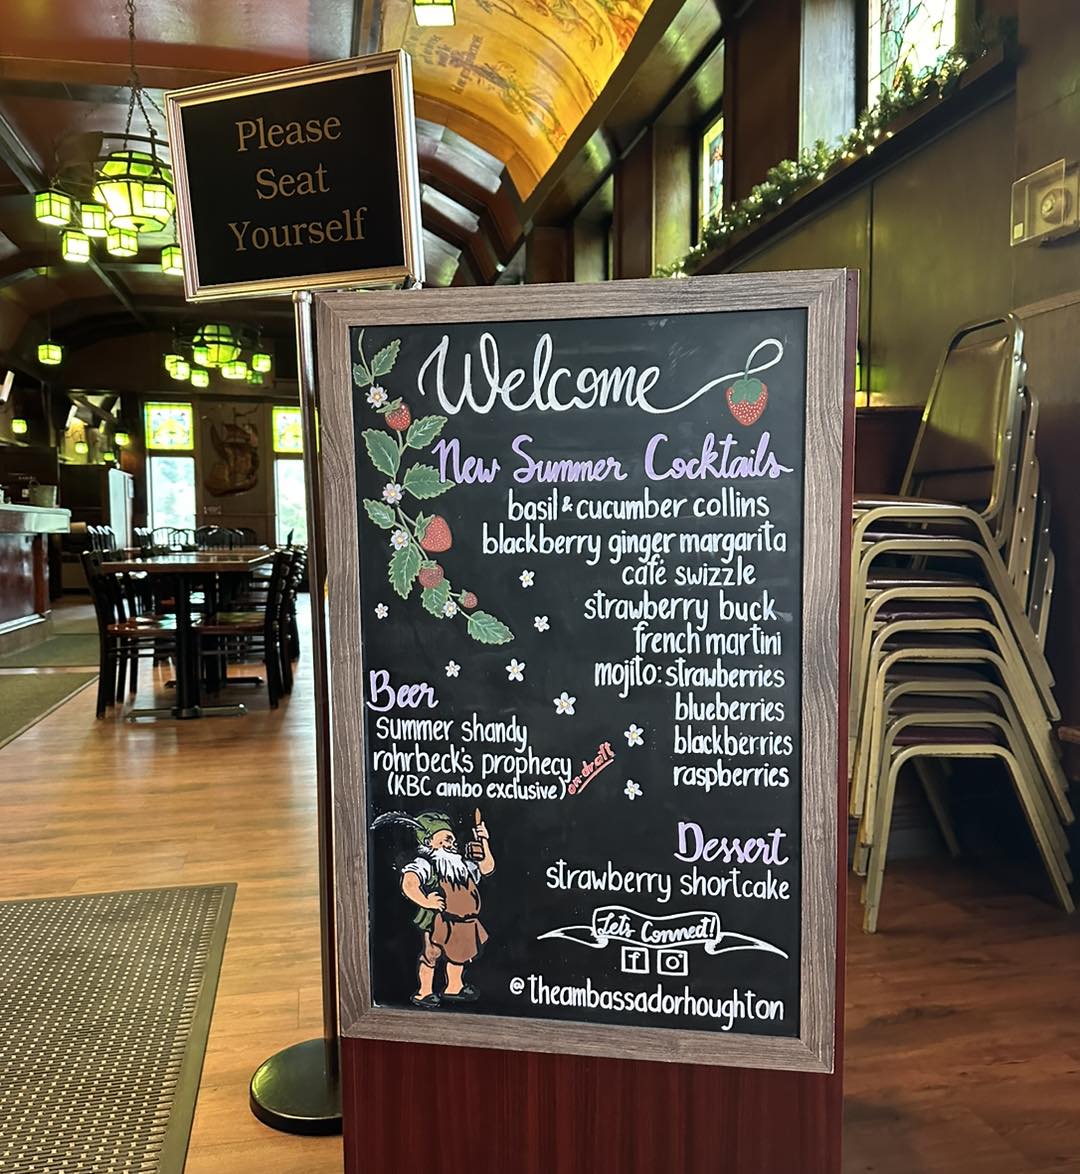 Please
Seat
Yourself
Welcome
New Summer Cocktails
basil & cucumber collins
blackberry ginger margarita
café swizzle
strawberry buck
french martini
mojito: strawberries
blueberries
blackberries
raspberries
Beer
Summer shandy
rohrbeck's prophecy
(KBC ambo exclusive)
on draft
Dessert
strawberry shortcake
Let's Connect!
@theambassadorhoughton